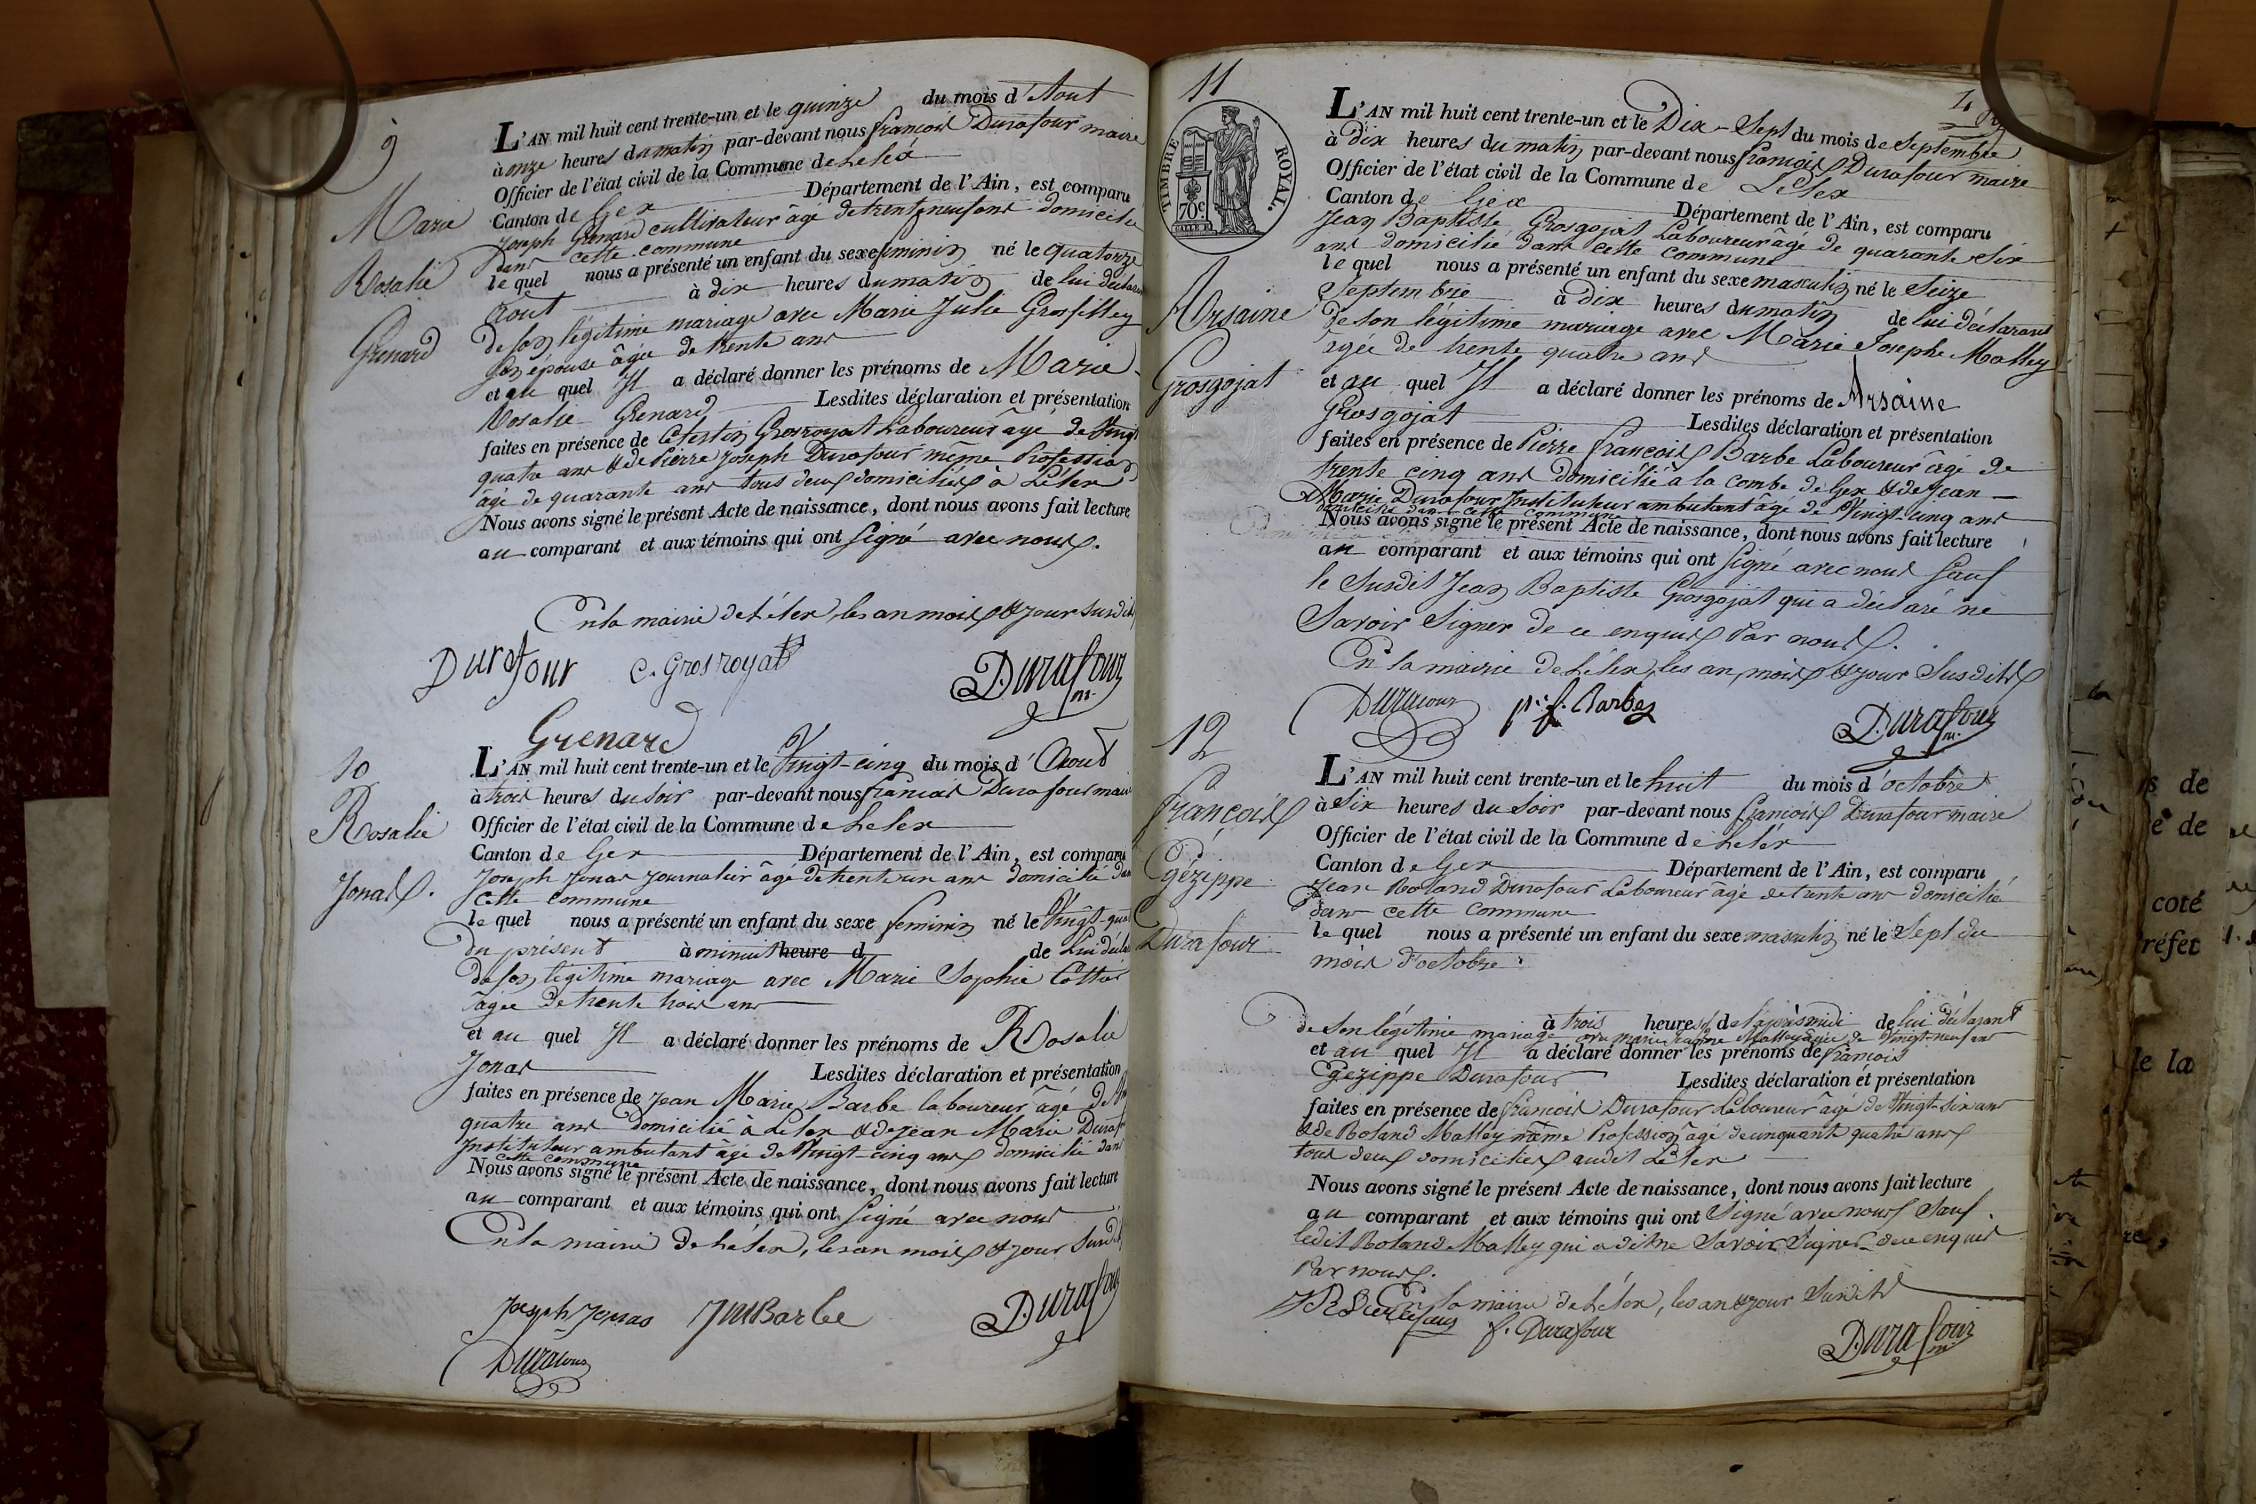 9
Marie
Rosalie
Grenard
L'AN mil huit cent trente-un et le quinze du mois d'Aout
à onze heures du matin par-devant nous françois Durafour maire
Officier de l'état civil de la Commune de Leléx
Canton de Gex Département de l'Ain, est comparu
Joseph Grenard cultivateur âgé de trente neuf ans domicilié
dans cette commune
le quel nous a présenté un enfant du sexe feminin né le quatorze
Aout à dix heures du matin de lui déclarant
de son légitime mariage avec Marie Julie Grosfilley
son épouse âgée de trente ans
et au quel Il a déclaré donner les prénoms de Marie
Rosalie Grenard Lesdites déclaration et présentation
faites en présence de Célestin Grosroyat Laboureur âgé de Vingt
quatre ans & de Pierre Joseph Durafour même Profession
âgé de quarante ans tous deux domiciliés à Lélex
Nous avons signé le présent Acte de naissance, dont nous avons fait lecture
au comparant et aux témoins qui ont signé avec nous.
En la mairie de Lélex, les an mois & jour susdits
Durafour C. Grosroyat Durafour m.
Grenard
10
Rosalie
Jonas.
L'AN mil huit cent trente-un et le Vingt-cinq du mois d'Aout
à trois heures du soir par-devant nous françois Durafour maire
Officier de l'état civil de la Commune de Lelex
Canton de Gex Département de l'Ain, est comparu
Joseph Jonas journalier âgé de trente un ans domicilié dans
cette commune
le quel nous a présenté un enfant du sexe feminin né le Vingt-quatre
du présent à minuit heure d de Lui déclarant
de son légitime mariage avec Marie Sophie Cottier
âgée de trente trois ans
et au quel Il a déclaré donner les prénoms de Rosalie
Jonas Lesdites déclaration et présentation
faites en présence de Jean Marie Barbe laboureur âgé de
quatre ans domicilié à Lelex & de Jean Marie Durafour
Instituteur ambulant âgé de Vingt-cinq ans domicilié dans
cette commune
Nous avons signé le présent Acte de naissance, dont nous avons fait lecture
au comparant et aux témoins qui ont signé avec nous
En la mairie de Lélex, les an mois & jour susdits
Joseph Jonas JM Barbe Durafour
Durafour
11
TIMBRE ROYAL.
70c
Arsaine
Grosgojat
L'AN mil huit cent trente-un et le Dix-Sept du mois de Septembre
à dix heures du matin par-devant nous françois Durafour maire
Officier de l'état civil de la Commune de Lélex
Canton de Gex Département de l'Ain, est comparu
Jean Baptiste Grosgojat Laboureur âgé de quarante six
ans domicilié dans cette commune
le quel nous a présenté un enfant du sexe masculin né le Seize
Septembre à dix heures du matin de lui déclarant
de son légitime mariage avec Marie Josephe Molley
agée de trente quatre ans
et au quel Il a déclaré donner les prénoms de Arsaine
Grosgojat Lesdites déclaration et présentation
faites en présence de Pierre françois Barbe Laboureur âgé de
trente cinq ans domicilié à la combe de Gex & de Jean
Marie Durafour Instituteur ambulant âgé de Vingt-cinq ans
domicilié dans cette commune
Nous avons signé le présent Acte de naissance, dont nous avons fait lecture
au comparant et aux témoins qui ont signé avec nous sauf
le susdit Jean Baptiste Grosgojat qui a déclaré ne
Savoir Signer de ce enquis Par nous.
En la mairie de Lélex, les an, mois & jour Susdits
Durafour p. f. Barbe Durafour m.
12
françois
Egézippe
Durafour
L'AN mil huit cent trente-un et le huit du mois d'octobre
à six heures du Soir par-devant nous françois Durafour maire
Officier de l'état civil de la Commune de Leléx
Canton de Gex Département de l'Ain, est comparu
Jean Roland Durafour Laboureur âgé de trente ans domicilié
dans cette commune
le quel nous a présenté un enfant du sexe masculin né le Sept du
mois d'octobre
à trois heures de l'après midi de lui déclarant
de son légitime mariage avec Marie Molley âgée de Vingt-neuf ans
et au quel Il a déclaré donner les prénoms de françois
Egezippe Durafour Lesdites déclaration et présentation
faites en présence de françois Durafour Laboureur âgé de Vingt-six ans
& de Roland Molley même Profession âgé de cinquante quatre ans
tous deux domiciliés audit Lélex
Nous avons signé le présent Acte de naissance, dont nous avons fait lecture
au comparant et aux témoins qui ont Signé avec nous Sauf
ledit Roland Molley qui a dit ne Savoir Signer de ce enquis
Par nous.
En la mairie de Lélex, les an & jour Susdits
JR Durafour f. Durafour Durafour m.
s de
e de
coté
réfet
de la